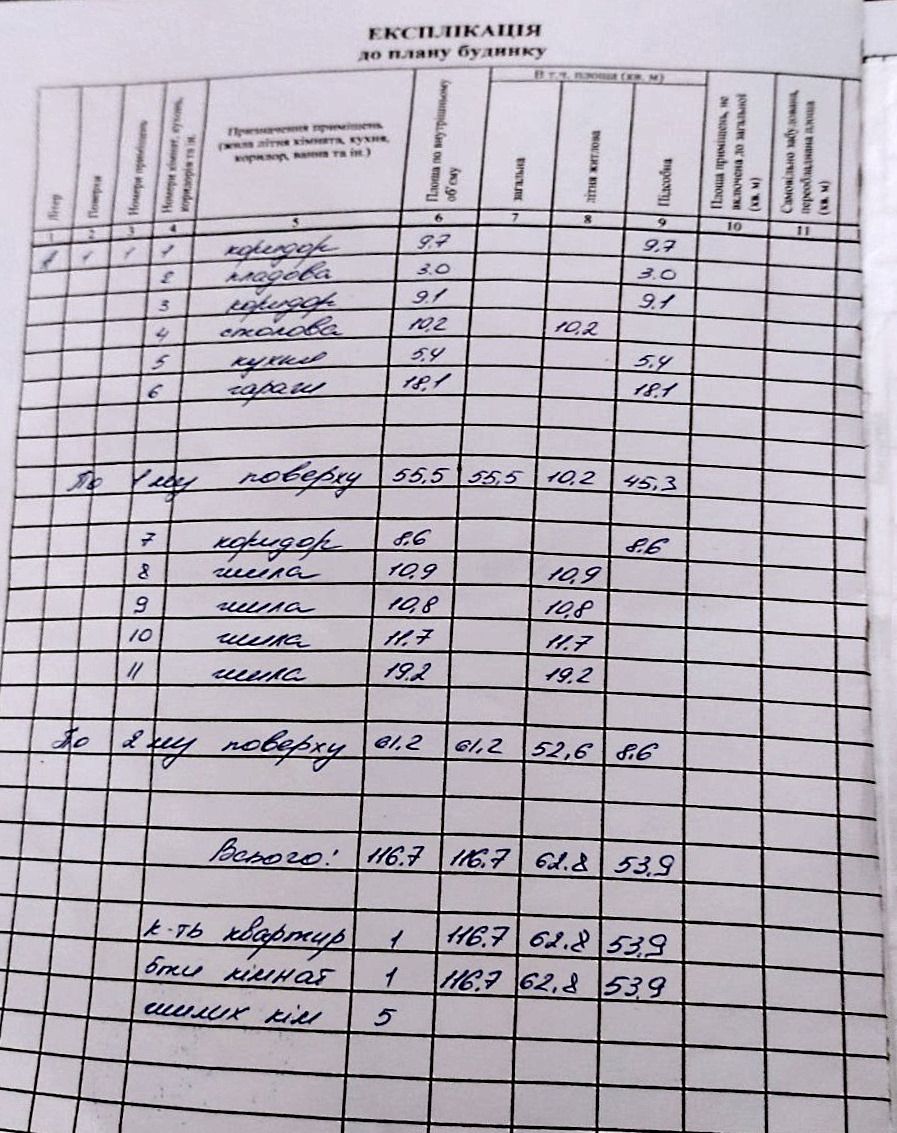 ЕКСПЛІКАЦІЯ
до плану будинку
Літер | Поверхи | Номери приміщень | Номери кімнат, кухонь, коридорів та ін. | Призначення приміщень (жила літня кімната, кухня, коридор, ванна та ін.) | Площа по внутрішньому об'єму | В т.ч. площа (кв. м) | загальна | літня житлова | Підсобна | Площа приміщень, не включена до загальної (кв. м) | Самовільно забудована, переобладнана площа (кв. м)
1 2 3 4 5 6 7 8 9 10 11
1 1 1 коридор 9.7 9.7
2 кладова 3.0 3.0
3 коридор 9.1 9.1
4 столова 10,2 10,2
5 кухня 5,4 5,4
6 гараж 18,1 18,1
По 1 му поверху 55,5 55,5 10,2 45,3
7 коридор 8.6 8.6
8 жила 10,9 10,9
9 жила 10,8 10,8
10 жила 11.7 11.7
11 жила 19.2 19,2
По 2 му поверху 61,2 61,2 52,6 8.6
Всього: 116.7 116.7 62.8 53,9
к-ть квартир 1 116.7 62.8 53,9
5ти кімнат 1 116.7 62,8 53,9
жилих кім 5